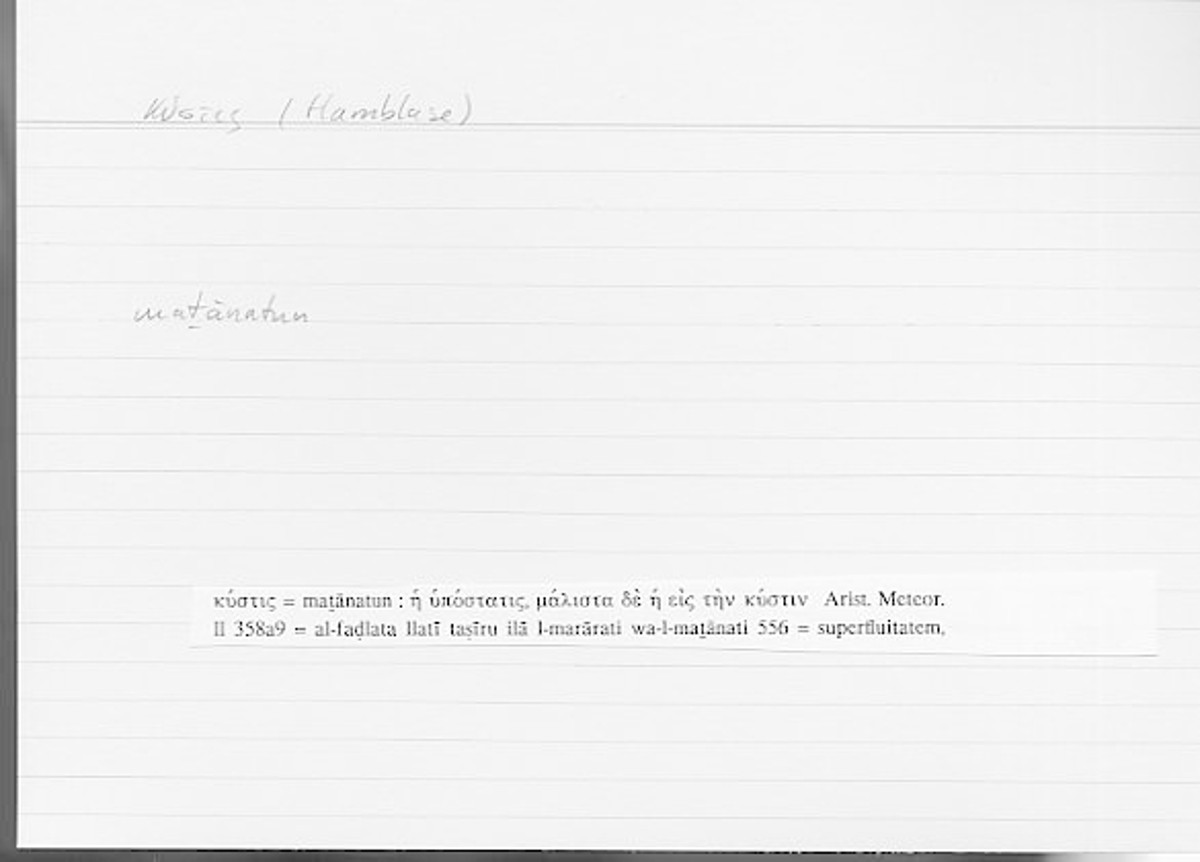 κύστις (Harnblase)
maṯānatun
κύστις = maṯānatun : ἡ ὑπόστατις, μάλιστα δὲ ἡ εἰς τὴν κύστιν Arist. Meteor.
II 358a9 = al-faḍlata llatī taṣīru ilā l-marārati wa-l-maṯānati 556 = superfluitatem,